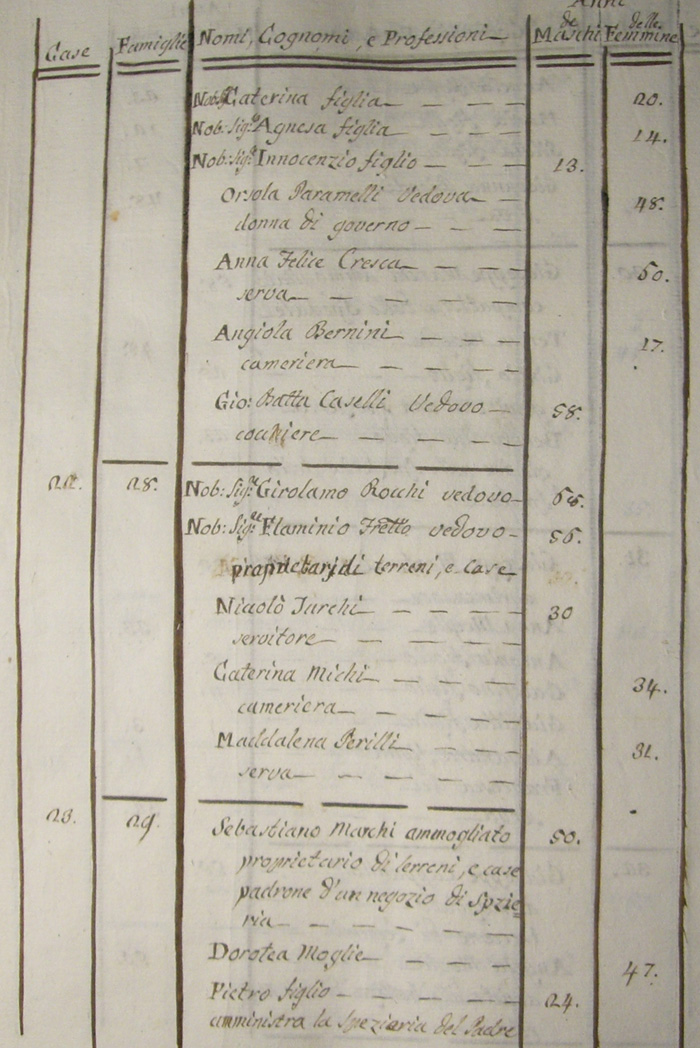 Anni
Case Famiglie Nomi, Cognomi, e Professioni de Maschi delle Femmine
Nob: Caterina figlia 20.
Nob: Sig.ª Agnesa figlia 14.
Nob: Sig.ʳ Innocenzio figlio 13.
Orsola Paramelli Vedova 48.
donna di governo
Anna Felice Cresca 50.
serva
Angiola Bernini 17.
cameriera
Gio: Batta Caselli Vedovo 58.
cocchiere
22. 28. Nob: Sig.ʳᵉ Girolamo Rocchi vedovo
Nob: Sig.ʳᵉ Flaminio vedovo 56.
proprietarj di terreni, e case
Nicolò Turchi 30
servitore
Caterina Michi 34.
cameriera
Maddalena Perilli 31.
serva
23. 29. Sebastiano Marchi ammogliato 50.
proprietario di terreni, e case
padrone d'un negozio di Spzie=
ria
Dorotea Moglie 47.
Pietro figlio 24.
amministra la speziaria del Padre